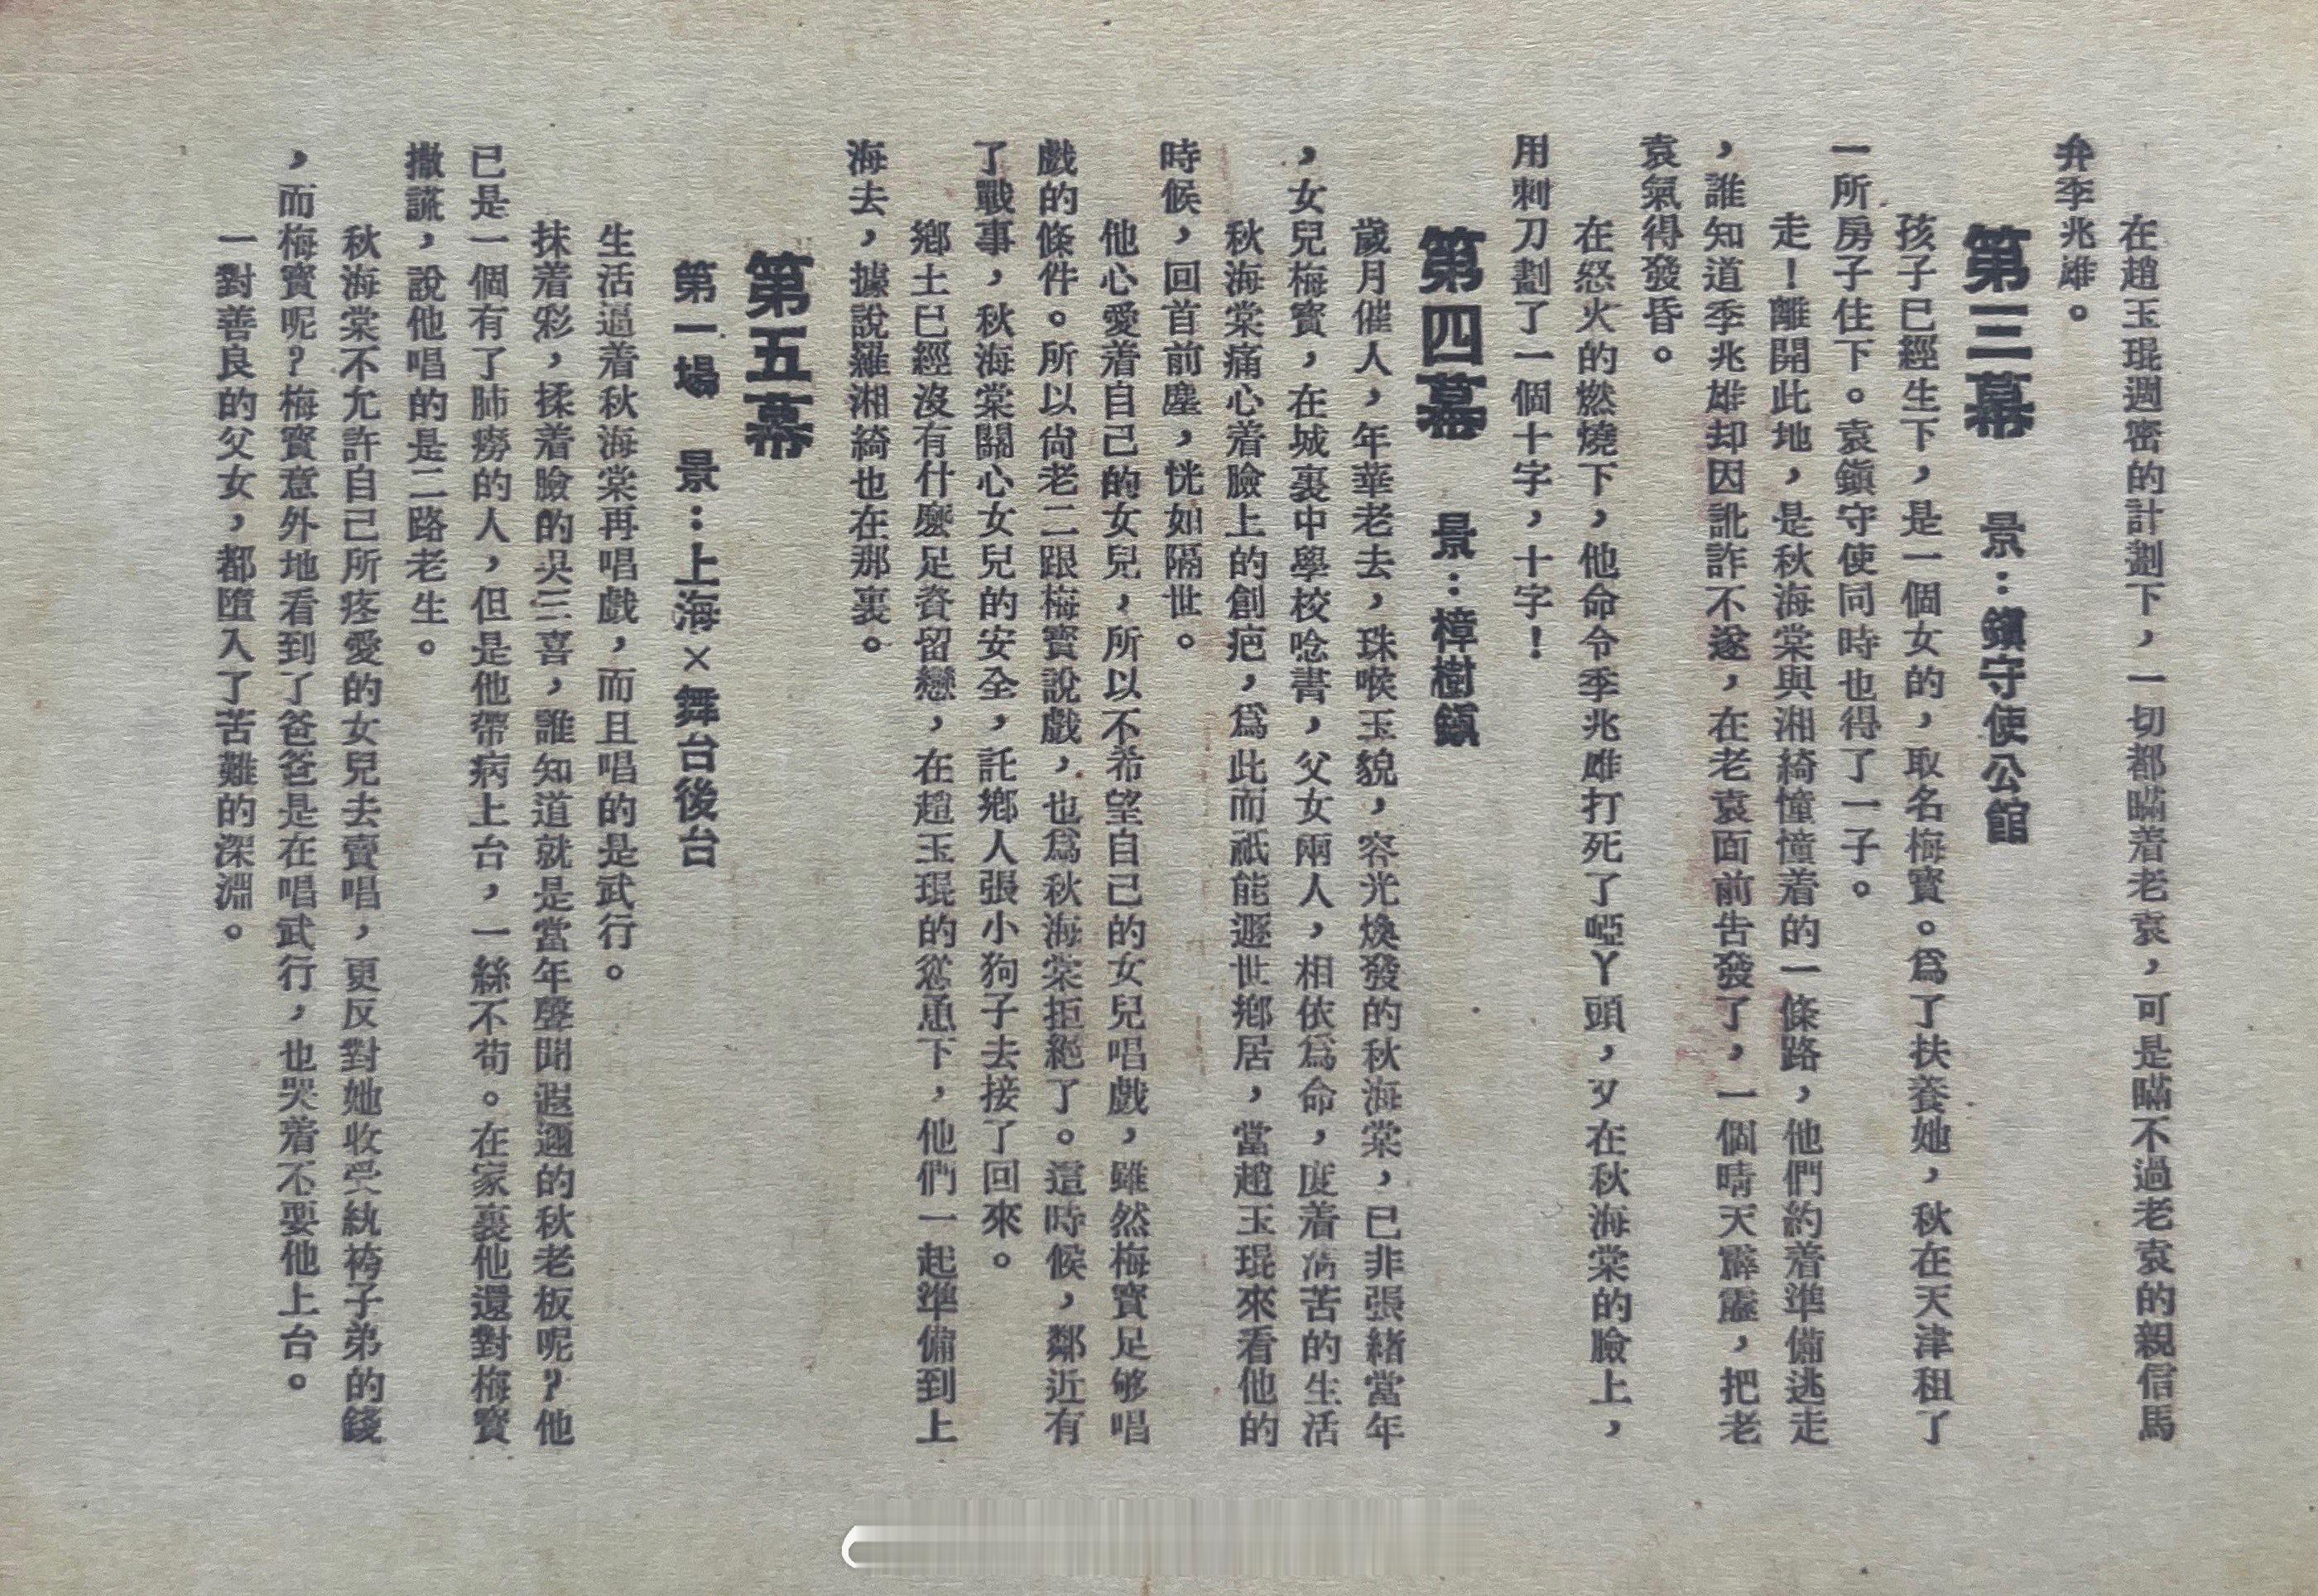 在趙玉琨週密的計劃下，一切都瞞着老袁，可是瞞不過老袁的親信馬
弁季兆雄。
第三幕　景：鎮守使公館
孩子已經生下，是一個女的，取名梅寳。爲了扶養她，秋在天津租了
一所房子住下。袁鎭守使同時也得了一子。
走！離開此地，是秋海棠與湘綺憧憧着的一條路，他們約着準備逃走
，誰知道季兆雄却因訛詐不遂，在老袁面前告發了，一個晴天霹靂，把老
袁氣得發昏。
在怒火的燃燒下，他命令季兆雄打死了啞丫頭，又在秋海棠的臉上，
用刺刀劃了一個十字，十字！
第四幕　景：樟樹鎭
歲月催人，年華老去，珠喉玉貌，容光煥發的秋海棠，已非張緒當年
，女兒梅寳，在城裏中學校唸書，父女兩人，相依爲命，度着淸苦的生活
秋海棠痛心着臉上的創疤，爲此而祇能遯世鄉居，當趙玉琨來看他的
時候，回首前塵，恍如隔世。
他心愛着自己的女兒，所以不希望自己的女兒唱戲，雖然梅寳足够唱
戲的條件。所以尙老二跟梅寳說戲，也爲秋海棠拒絕了。這時候，鄰近有
了戰事，秋海棠關心女兒的安全，託鄉人張小狗子去接了回來。
鄉土已經沒有什麼足資留戀，在趙玉琨的慫恿下，他們一起準備到上
海去，據說羅湘綺也在那裏。
第五幕
第一場　景：上海×舞台後台
生活逼着秋海棠再唱戲，而且唱的是武行。
抹着彩，揉着臉的吳三喜，誰知道就是當年聲聞遐邇的秋老板呢？他
已是一個有了肺癆的人，但是他帶病上台，一絲不苟。在家裏他還對梅寳
撒謊，說他唱的是二路老生。
秋海棠不允許自己所疼愛的女兒去賣唱，更反對她收受紈袴子弟的錢
，而梅寳呢？梅寳意外地看到了爸爸是在唱武行，也哭着不要他上台。
一對善良的父女，都墮入了苦難的深淵。